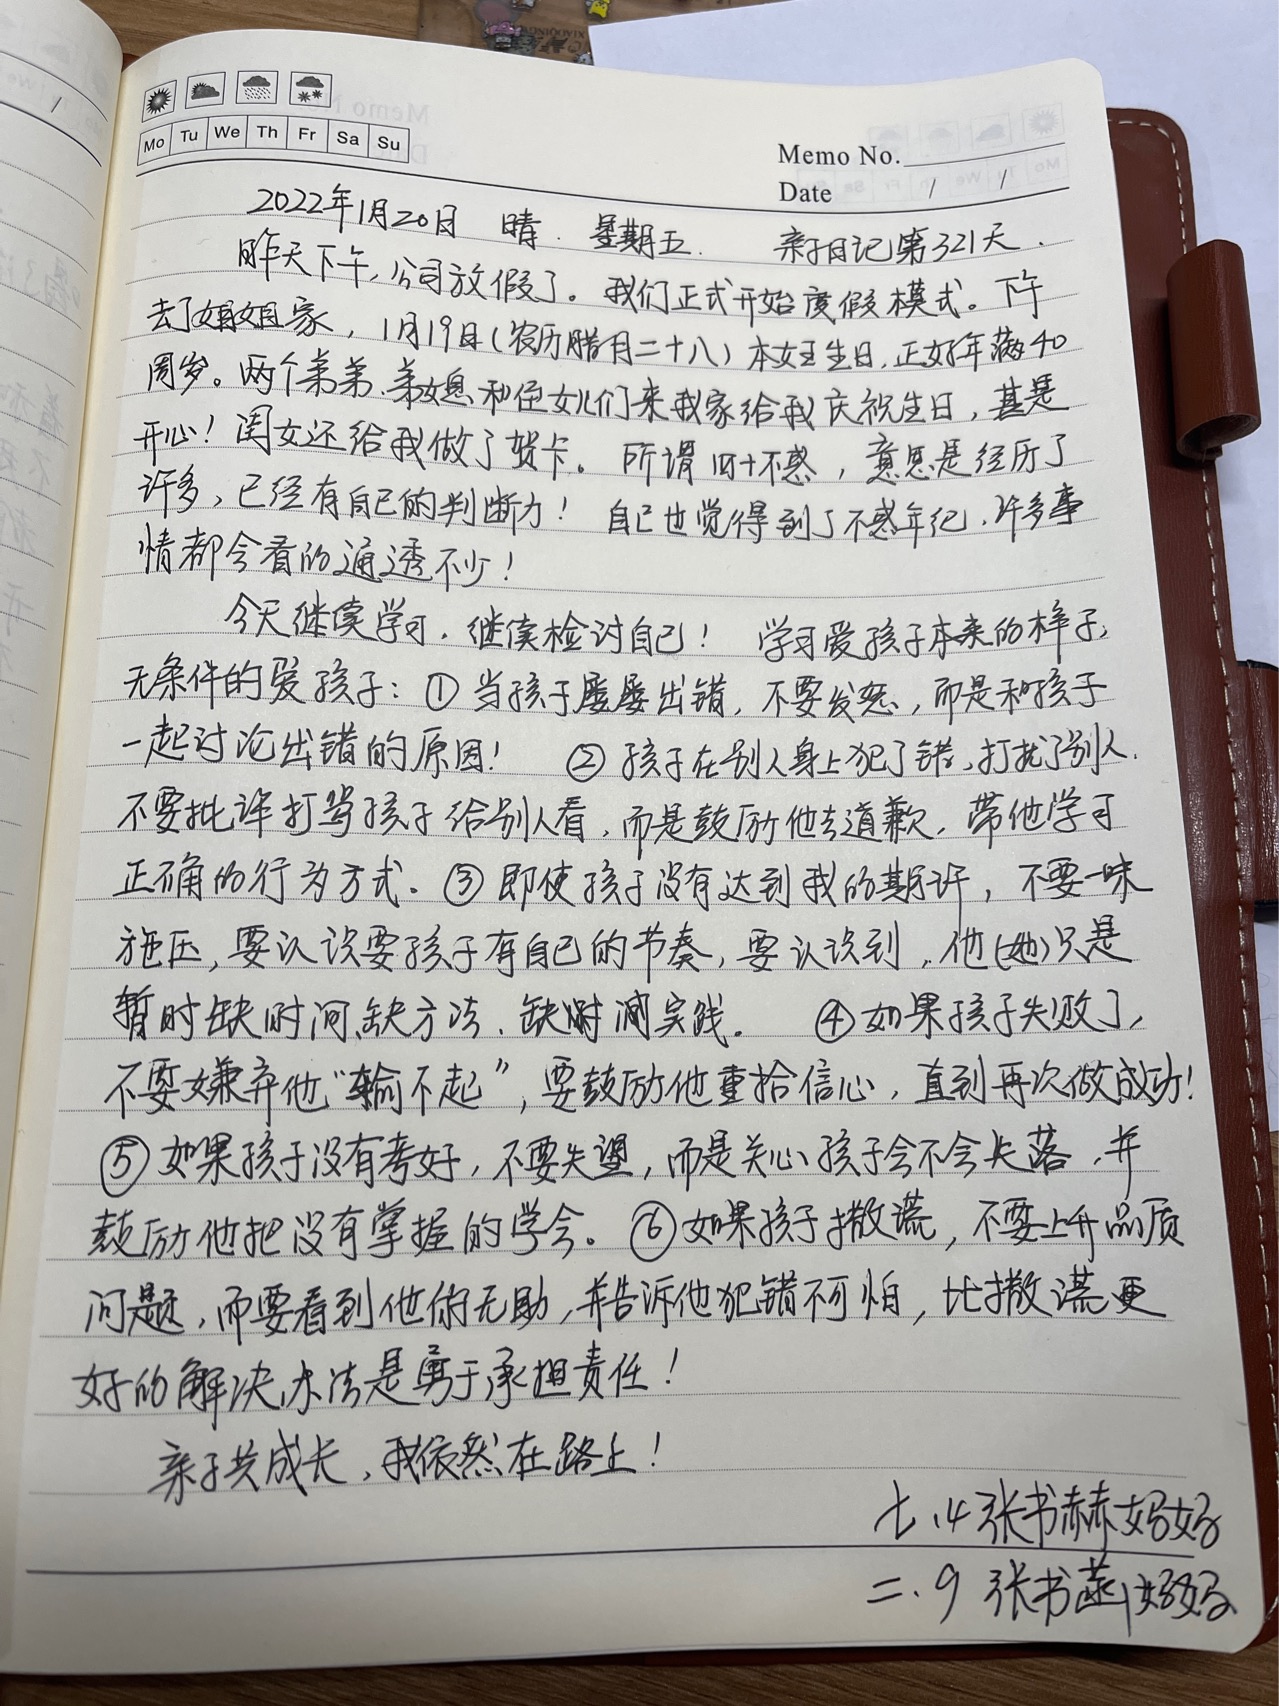 Mo Tu We Th Fr Sa Su
Memo No.
Date / /
2022年1月20日 晴. 星期五. 亲子日记第321天.
昨天下午,公司放假了。我们正式开始度假模式。下午
去了姐姐家,1月19日(农历腊月二十八)本女王生日,正好年满40
周岁。两个弟弟、弟媳和侄女儿们来我家给我庆祝生日,甚是
开心!闺女还给我做了贺卡。所谓四十不惑,意思是经历了
许多,已经有自己的判断力!自己也觉得到了不惑年纪,许多事
情都会看的通透不少!
今天继续学习,继续检讨自己!学习爱孩子本来的样子,
无条件的爱孩子:①当孩子屡屡出错,不要发怒,而是和孩子
一起讨论出错的原因!②孩子在别人身上犯了错,打扰了别人.
不要批评打骂孩子给别人看,而是鼓励他去道歉,带他学习
正确的行为方式.③即使孩子没有达到我的期许,不要一味
施压,要认识要孩子有自己的节奏,要认识到,他(她)只是
暂时缺时间、缺方法、缺时间实践。④如果孩子失败了,
不要嫌弃他“输不起”,要鼓励他重拾信心,直到再次做成功!
⑤如果孩子没有考好,不要失望,而是关心孩子会不会失落,并
鼓励他把没有掌握的学会。⑥如果孩子撒谎,不要上升品质
问题,而要看到他的无助,并告诉他犯错不可怕,比撒谎更
好的解决办法是勇于承担责任!
亲子共成长,我依然在路上!
七.4张书赫妈妈
二.9 张书菡妈妈